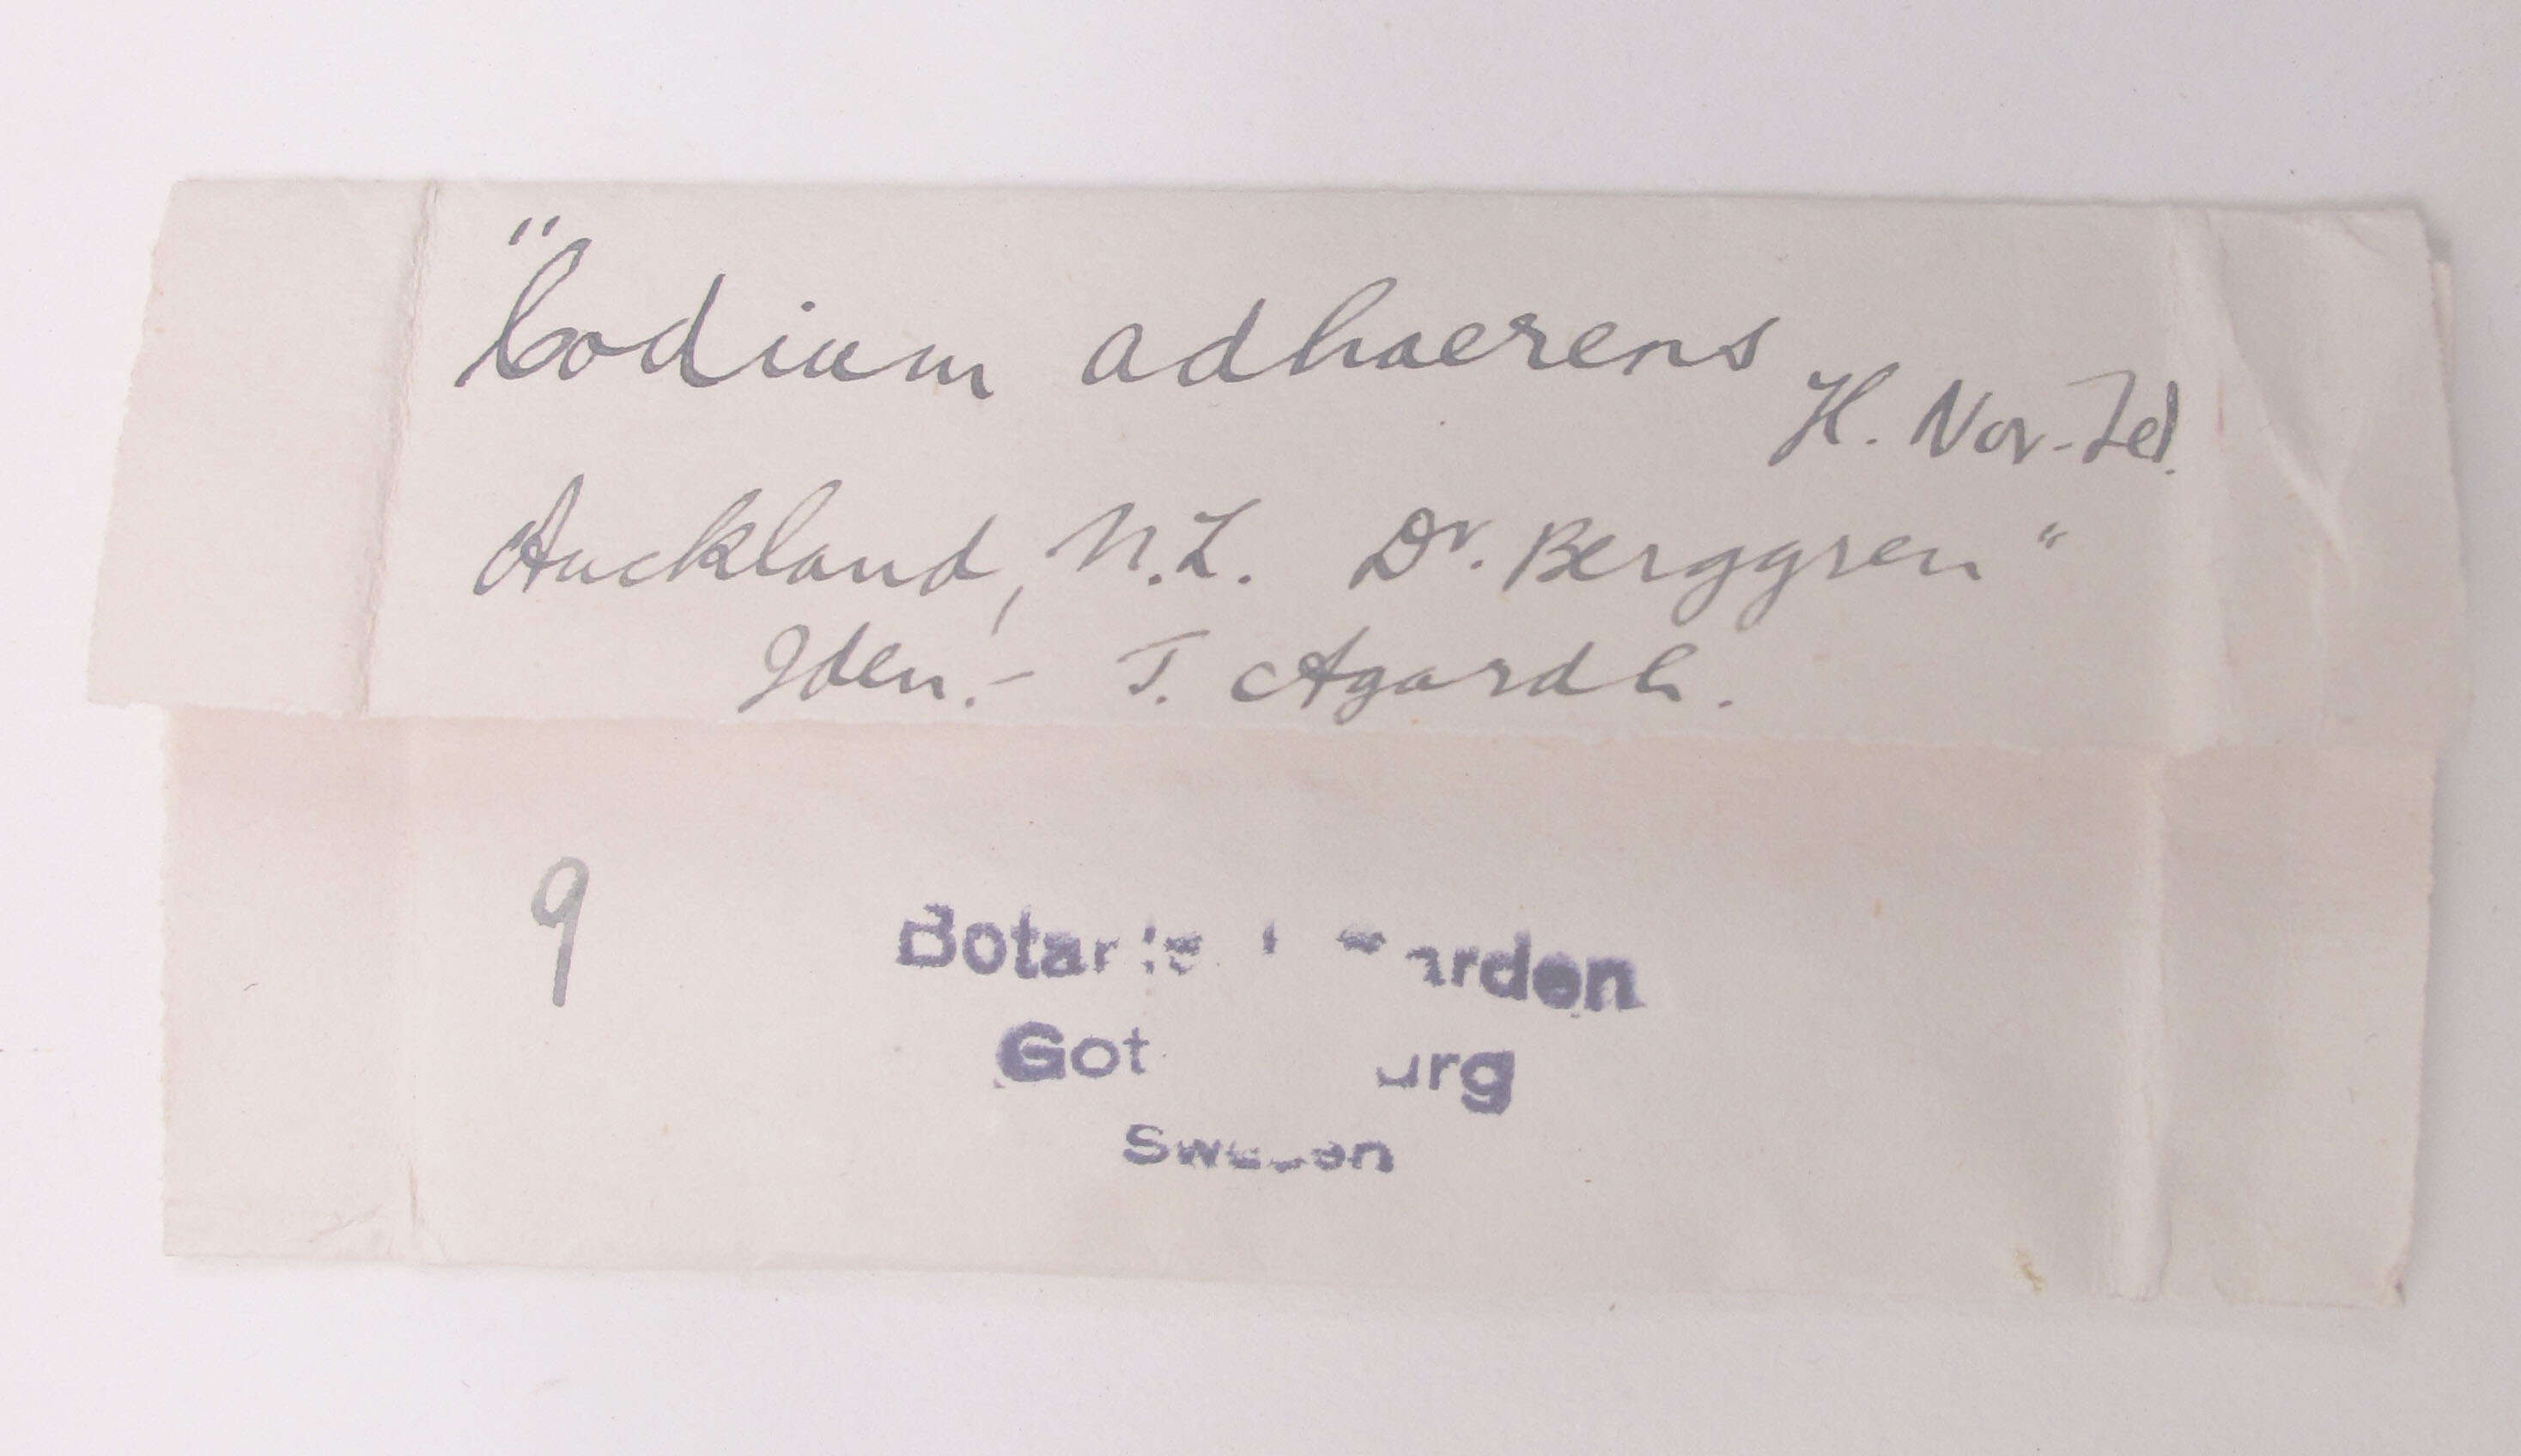 "Codium adhaerens
H. Nov-Zel.
Auckland, N.Z. Dr. Berggren"
Iden.- J. Agardh.
9
Botanical Garden
Gothenburg
Sweden